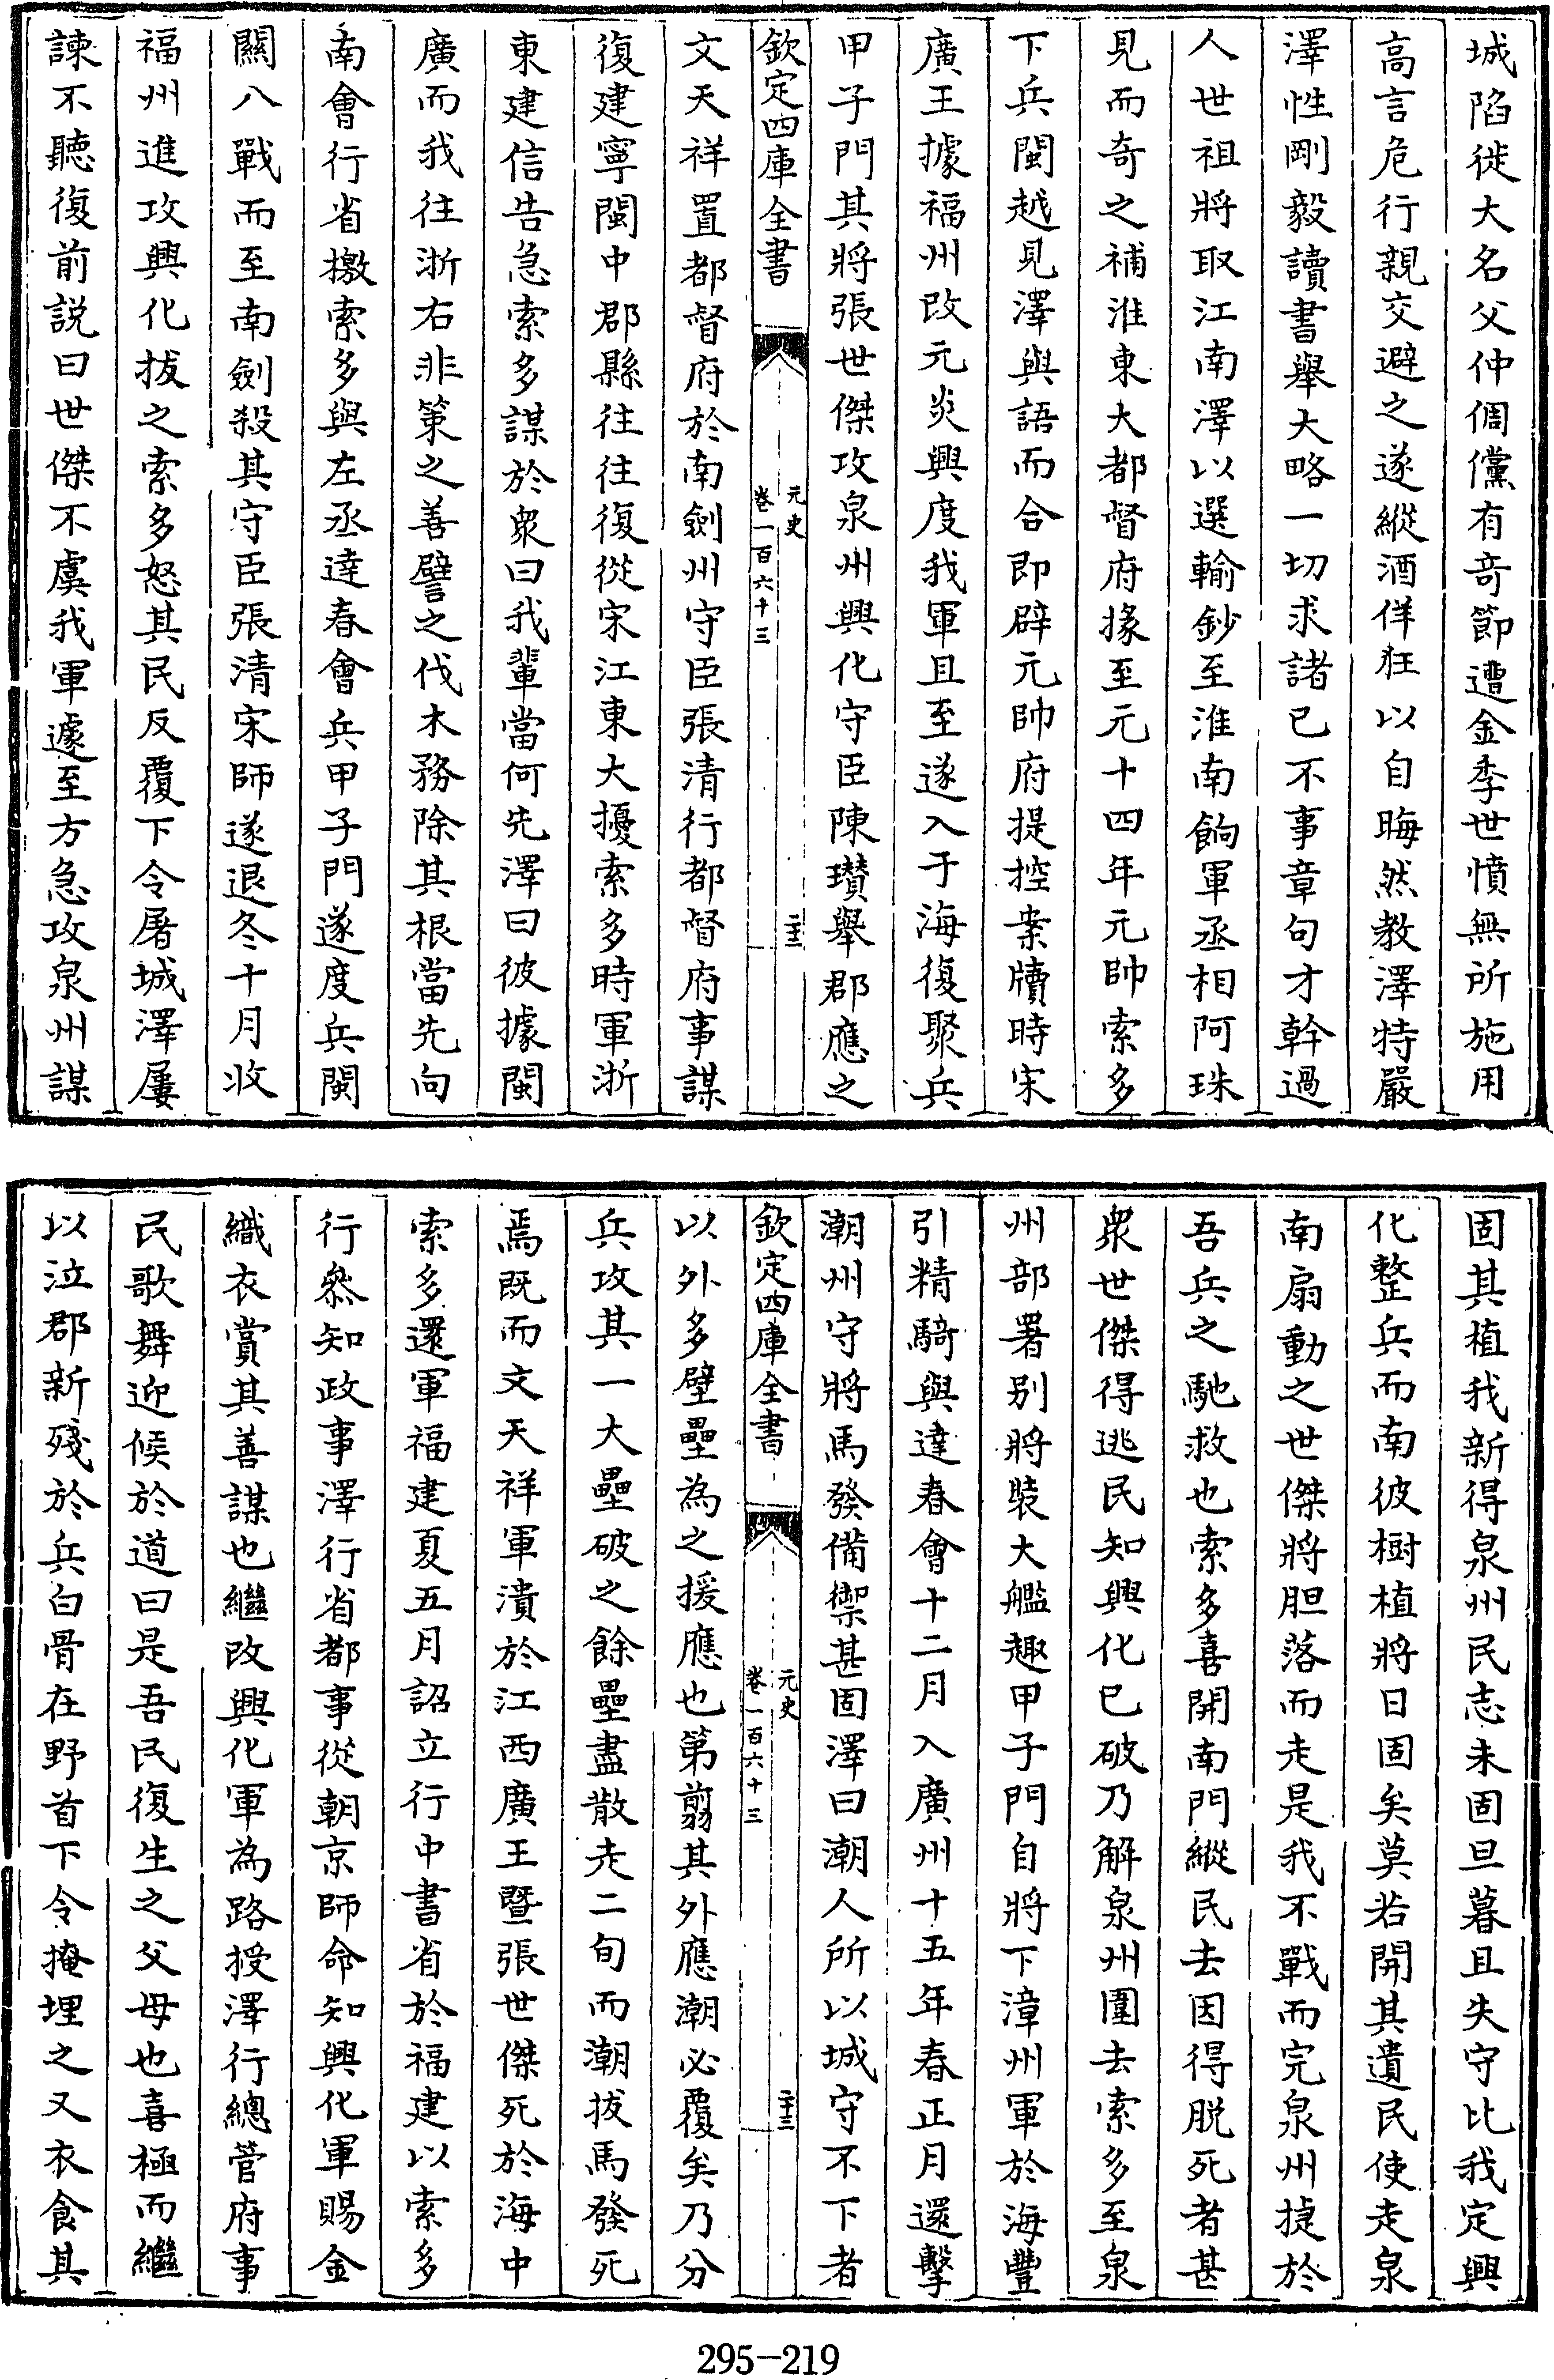 城陷徙大名父仲倜儻有竒節遭金季世憤無所施用
高言危行親交避之遂縱酒佯狂以自晦然教澤特嚴
澤性剛毅讀書舉大略一切求諸已不事章句才幹過
人世祖將取江南澤以選輸鈔至淮南餉軍丞相阿珠
見而奇之補淮東大都督府掾至元十四年元帥索多
下兵閩越見澤與語而合即辟元帥府提控案牘時宋
廣王據福州改元炎興度我軍且至遂入于海復聚兵
甲子門其將張世傑攻泉州興化守臣陳瓚舉郡應之
欽定四庫全書
元史
卷一百六十三
二十三
文天祥置都督府於南劍州守臣張清行都督府事謀
復建寧閩中郡縣往往復從宋江東大擾索多時軍浙
東建信告急索多謀於衆曰我輩當何先澤曰彼據閩
廣而我往浙右非策之善譬之伐木務除其根當先向
南會行省檄索多與左丞達春會兵甲子門遂度兵閩
關八戰而至南劍殺其守臣張清宋師遂退冬十月收
福州進攻興化拔之索多怒其民反覆下令屠城澤屢
諫不聽復前説曰世傑不虞我軍遽至方急攻泉州謀
固其植我新得泉州民志未固旦暮且失守比我定興
化整兵而南彼樹植將日固矣莫若開其遺民使走泉
南扇動之世傑將胆落而走是我不戰而完泉州捷於
吾兵之馳救也索多喜開南門縱民去因得脱死者甚
衆世傑得逃民知興化已破乃解泉州圍去索多至泉
州部署别將裝大艦趣甲子門自將下漳州軍於海豐
引精騎與達春會十二月入廣州十五年春正月還擊
潮州守將馬發備禦甚固澤曰潮人所以城守不下者
欽定四庫全書
元史
卷一百六十三
二十三
以外多壁壘為之援應也第翦其外應潮必覆矣乃分
兵攻其一大壘破之餘壘盡散走二旬而潮拔馬發死
焉既而文天祥軍潰於江西廣王暨張世傑死於海中
索多還軍福建夏五月詔立行中書省於福建以索多
行叅知政事澤行省都事從朝京師命知興化軍賜金
織衣賞其善謀也繼改興化軍為路授澤行總管府事
民歌舞迎候於道曰是吾民復生之父母也喜極而繼
以泣郡新殘於兵白骨在野首下令掩埋之又衣食其
295-219